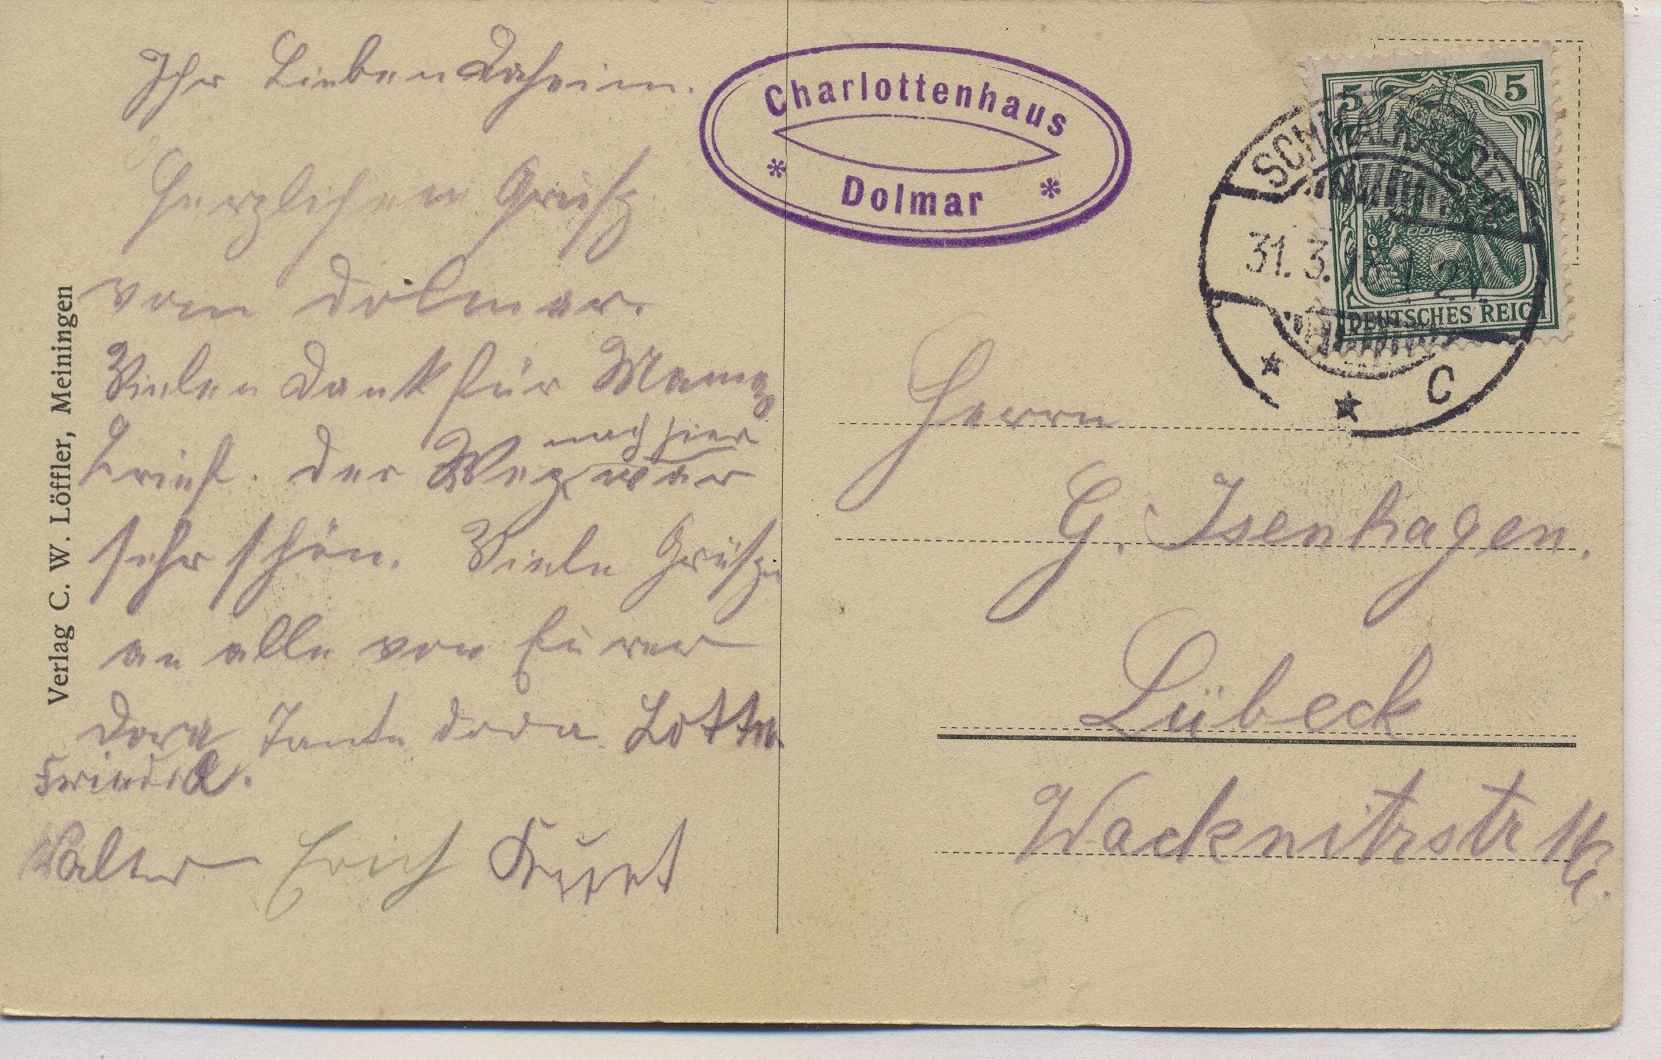 Ihr Lieben daheim.
Herzlichen Gruß
vom Dolmar.
Vielen Dank für Mamas
Brief. Der Weg nach hier war
sehr schön. Viele Grüße
an alle von Eurer
Dora Tante Dora. Lotte.
Friedel.
Walter Erich Kurt
Verlag C. W. Löffler, Meiningen
Charlottenhaus
* Dolmar *
5 5
DEUTSCHES REICH
31.3.
C
Herrn
G. Isenhagen.
Lübeck
Wacknitzstr